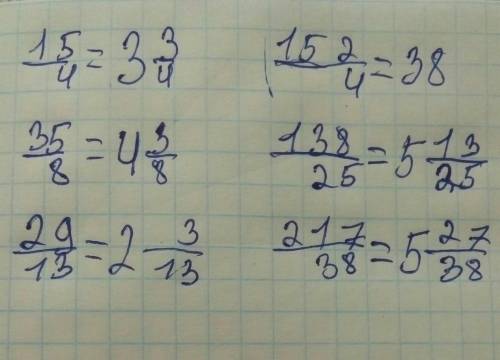 15/4 = 3 3/4
152/4 = 38
35/8 = 4 3/8
138/25 = 5 13/25
29/13 = 2 3/13
217/38 = 5 27/38